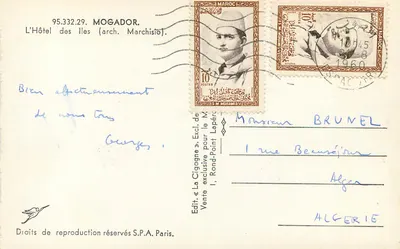 95.332.29. MOGADOR.
L'Hôtel des Iles (arch. Marchisio).
MAROC
10
POSTES
MAROC
POSTES
1960
Bien affectueusement
de nous tous
Georges.
Edit. « La Cigogne », Excl. de
Vente exclusive pour le M
1, Rond-Point Lapér
Monsieur BRUNEL
1 rue Beauséjour
Alger
ALGERIE
Droits de reproduction réservés S.P.A. Paris.